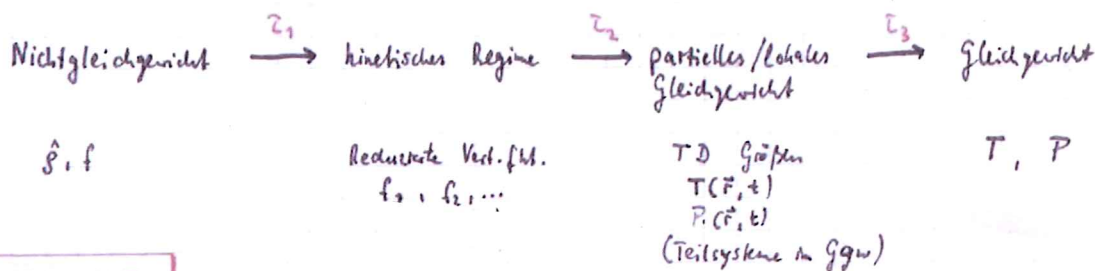 τ₁ τ₂ τ₃
Nichtgleichgewicht → kinetisches Regime → partielles/lokales → Gleichgewicht
Gleichgewicht
ρ̂, f Reduzierte Vert.fkt. TD Größen T, P
f₁, f₂, ... T(r⃗,t)
P(r⃗,t)
(Teilsysteme in Ggw)